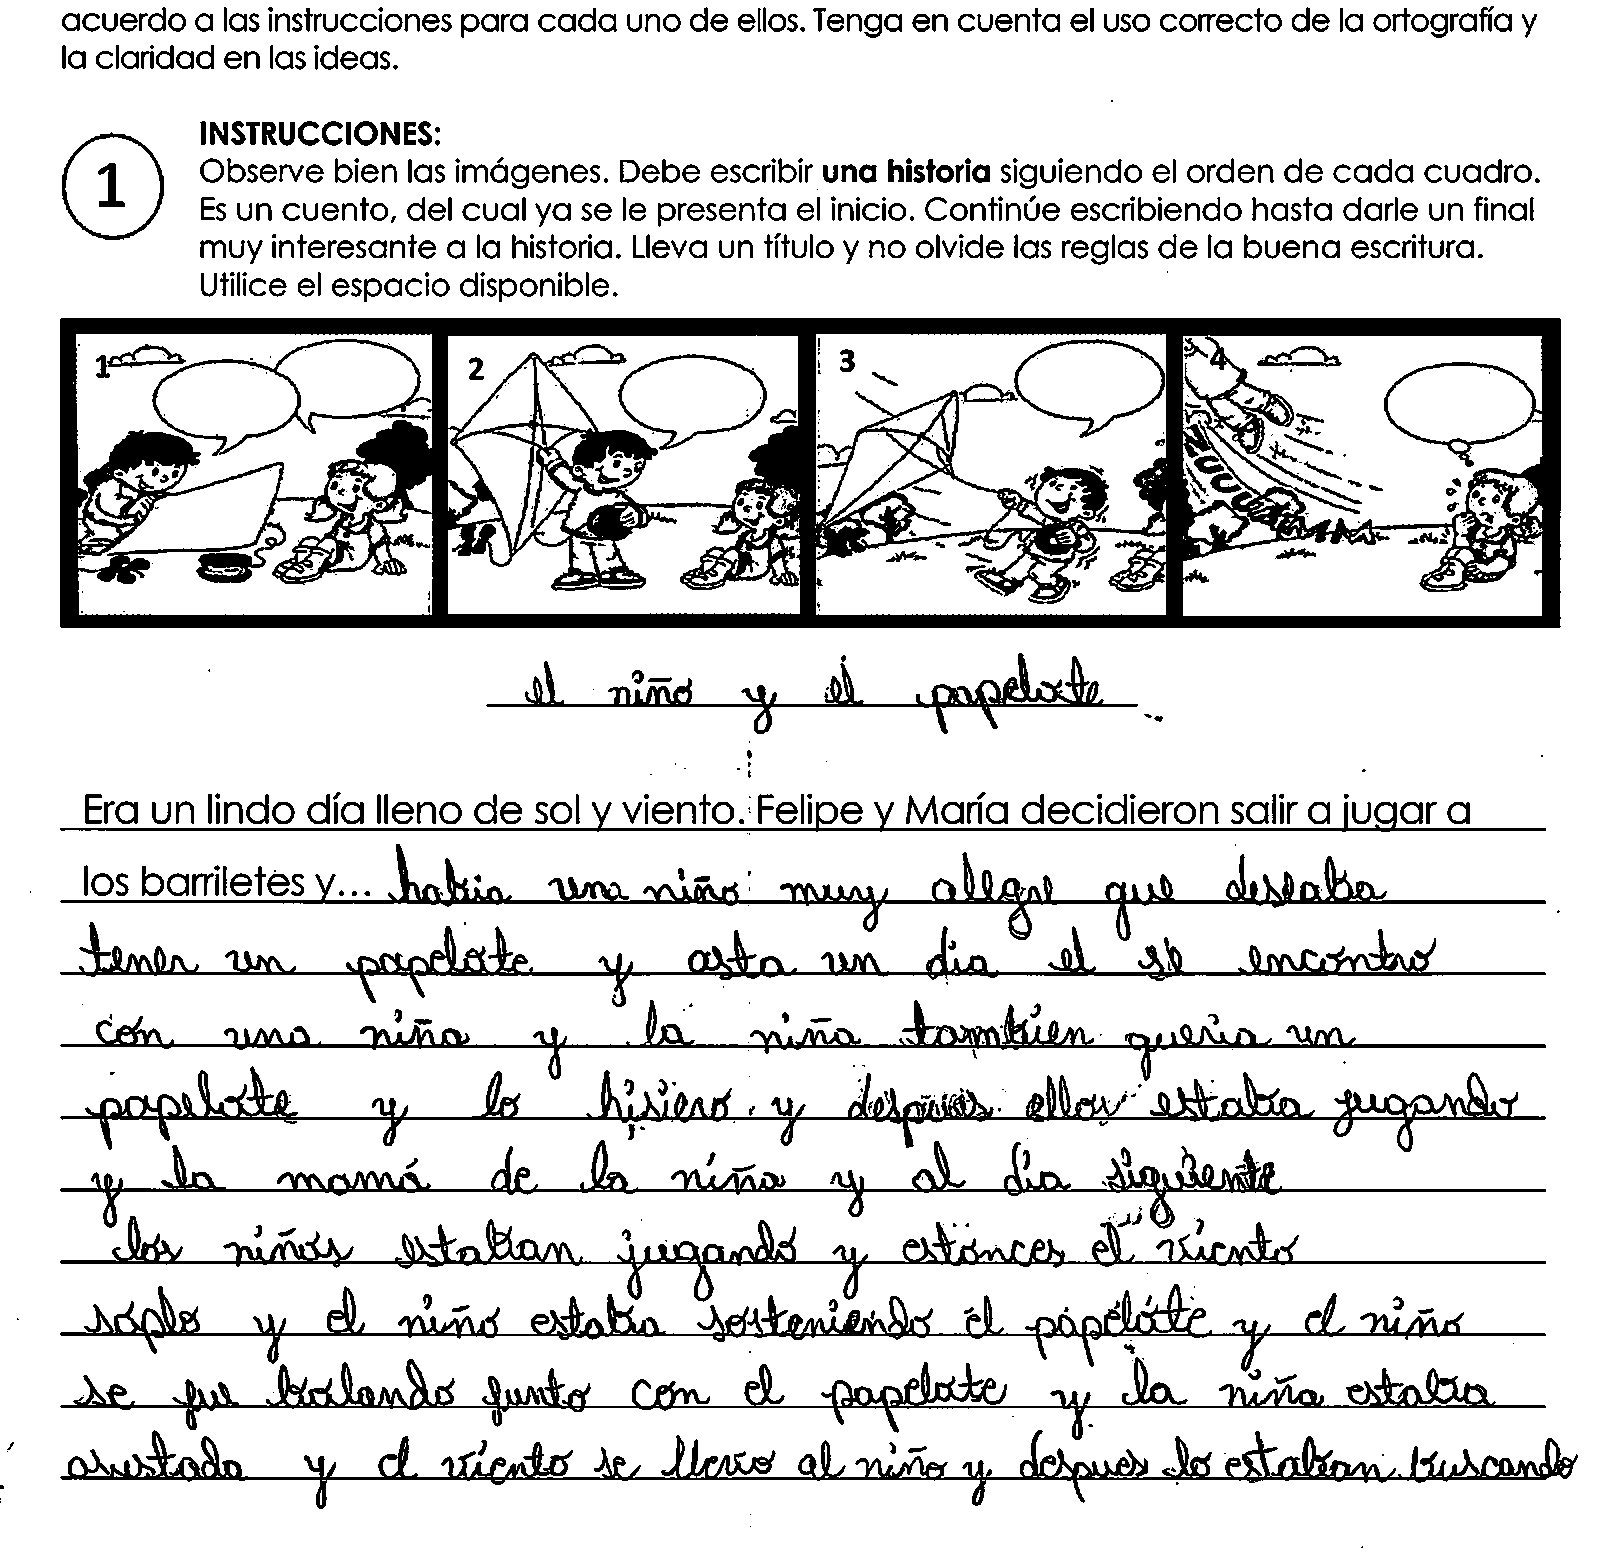 acuerdo a las instrucciones para cada uno de ellos. Tenga en cuenta el uso correcto de la ortografía y
la claridad en las ideas.
INSTRUCCIONES:
1
Observe bien las imágenes. Debe escribir una historia siguiendo el orden de cada cuadro.
Es un cuento, del cual ya se le presenta el inicio. Continúe escribiendo hasta darle un final
muy interesante a la historia. Lleva un título y no olvide las reglas de la buena escritura.
Utilice el espacio disponible.
1 2 3 4
el niño y el papelote
Era un lindo día lleno de sol y viento. Felipe y María decidieron salir a jugar a
los barriletes y... habia una niño muy alegre que deseaba
tener un papelote y asta un dia el se encontro
con una niña y la niña tambien queria un
papelote y lo hisiero y despues ellos estaba jugando
y la mamá de la niña y al dia siguiente
los niños estaban jugando y estonces el viento
soplo y el niño estaba sosteniendo el papelote y el niño
se fue bolando junto con el papelote y la niña estaba
asustada y el viento se llevo al niño y despues lo estaban buscando